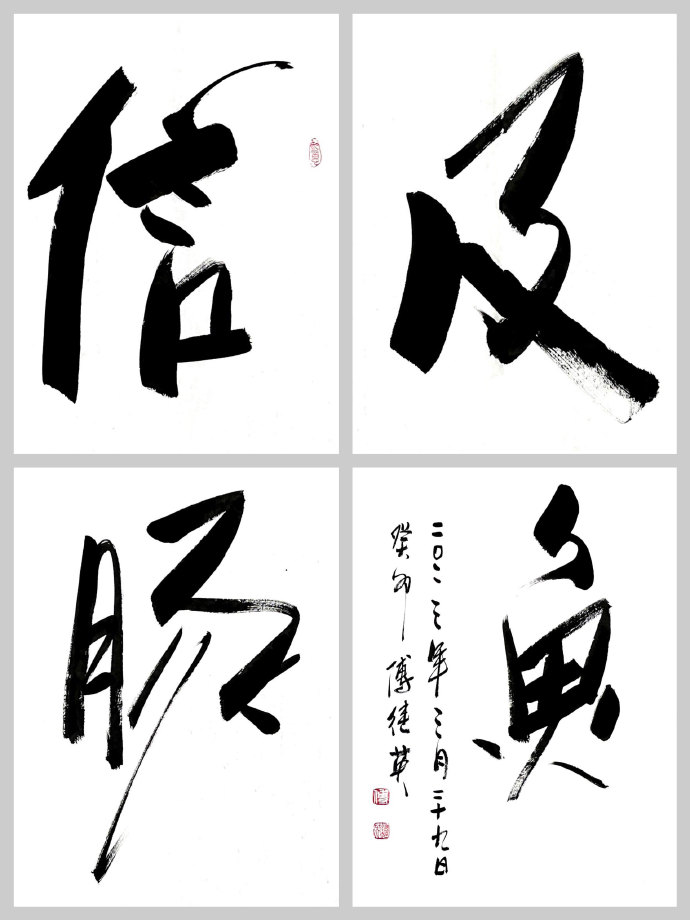 信
及
豚
魚
二〇二三年三月二十九日
癸卯 傅
英